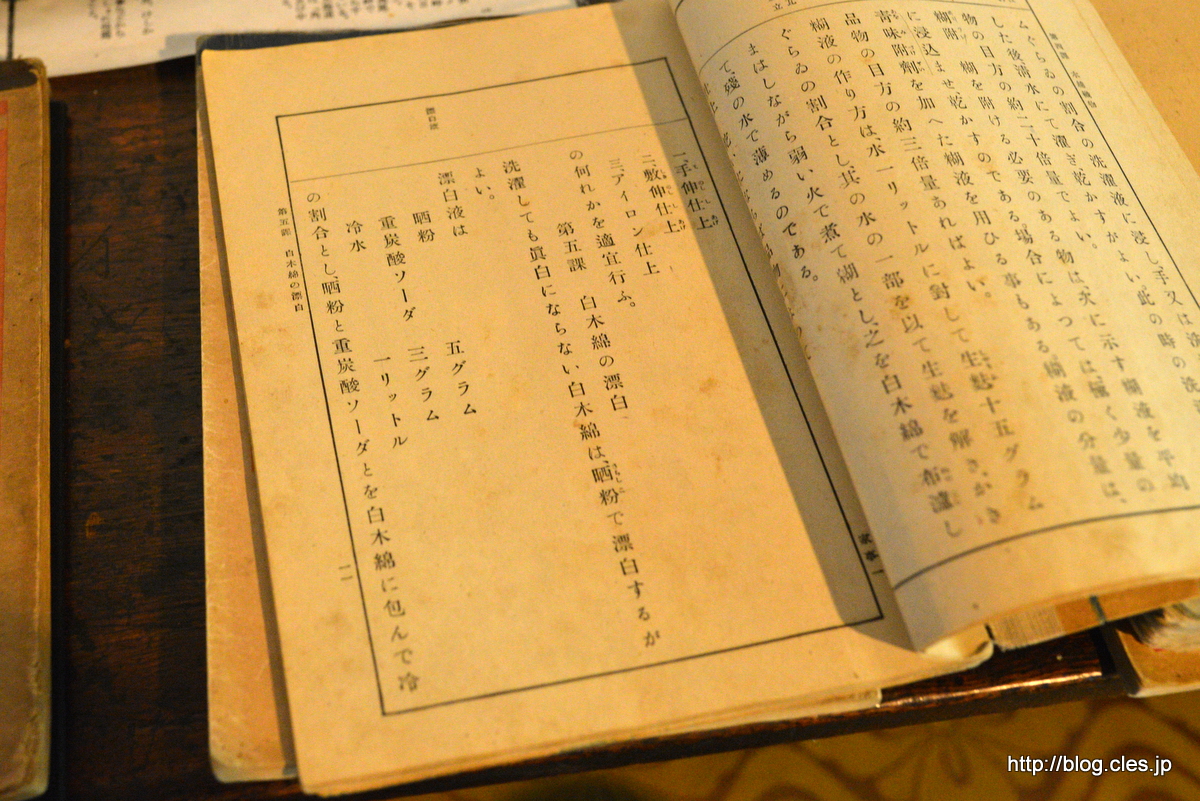 ムぐらゐの割合の洗濯液に浸し、手又は洗
した後、清水にて濯ぎ、乾かすがよい。此の時の洗
物の目方の約二十倍量でよい。
糊附 糊を附ける必要のある物は、次に示す糊液を平均
に浸込ませ、乾かすのである。場合によつては極く少量の
靑味附劑を加へた糊液を用ひる事もある。糊液の分量は、
品物の目方の約三倍量あればよい。
糊液の作り方は、水一リットルに對して生麩十五グラム
ぐらゐの割合とし、其の水の一部を以て生麩を解き、かき
まはしながら弱い火で煮て糊とし、之を白木綿で布濾し
て、殘の水で薄めるのである。
家事 一
一、手伸仕上
二、敷伸仕上
三、アイロン仕上
の何れかを適宜行ふ。
第五課 白木綿の漂白
洗濯しても眞白にならない白木綿は、晒粉で漂白するが
よい。
漂白液は
晒粉 五グラム
重炭酸ソーダ 三グラム
冷水 一リットル
の割合とし、晒粉と重炭酸ソーダとを白木綿に包んで冷
漂白液
第五課 白木綿の漂白
一一
http://blog.cles.jp